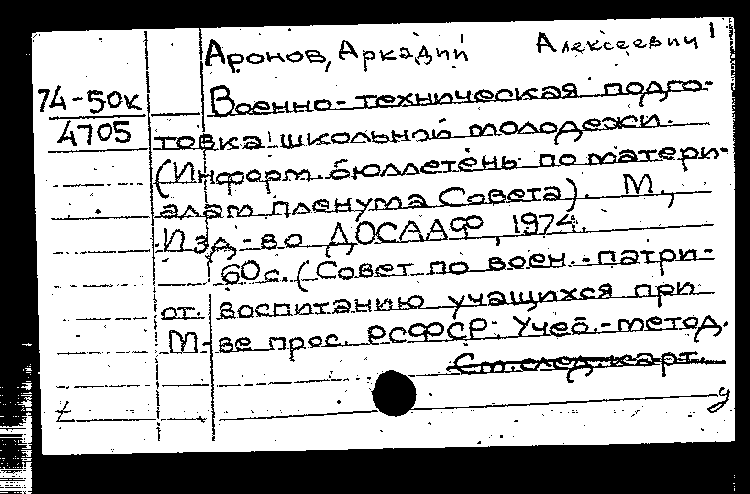 Аронов, Аркадий Алексеевич 1
74-50к
4705
Военно-техническая подго-
товка школьной молодежи.
(Информ. бюллетень по матери-
алам пленума Совета). М.,
Изд-во ДОСААФ, 1974.
60с. (Совет по воен.-патри-
от. воспитанию учащихся при
М-ве прос. РСФСР. Учеб.-метод.
См. след. карт.